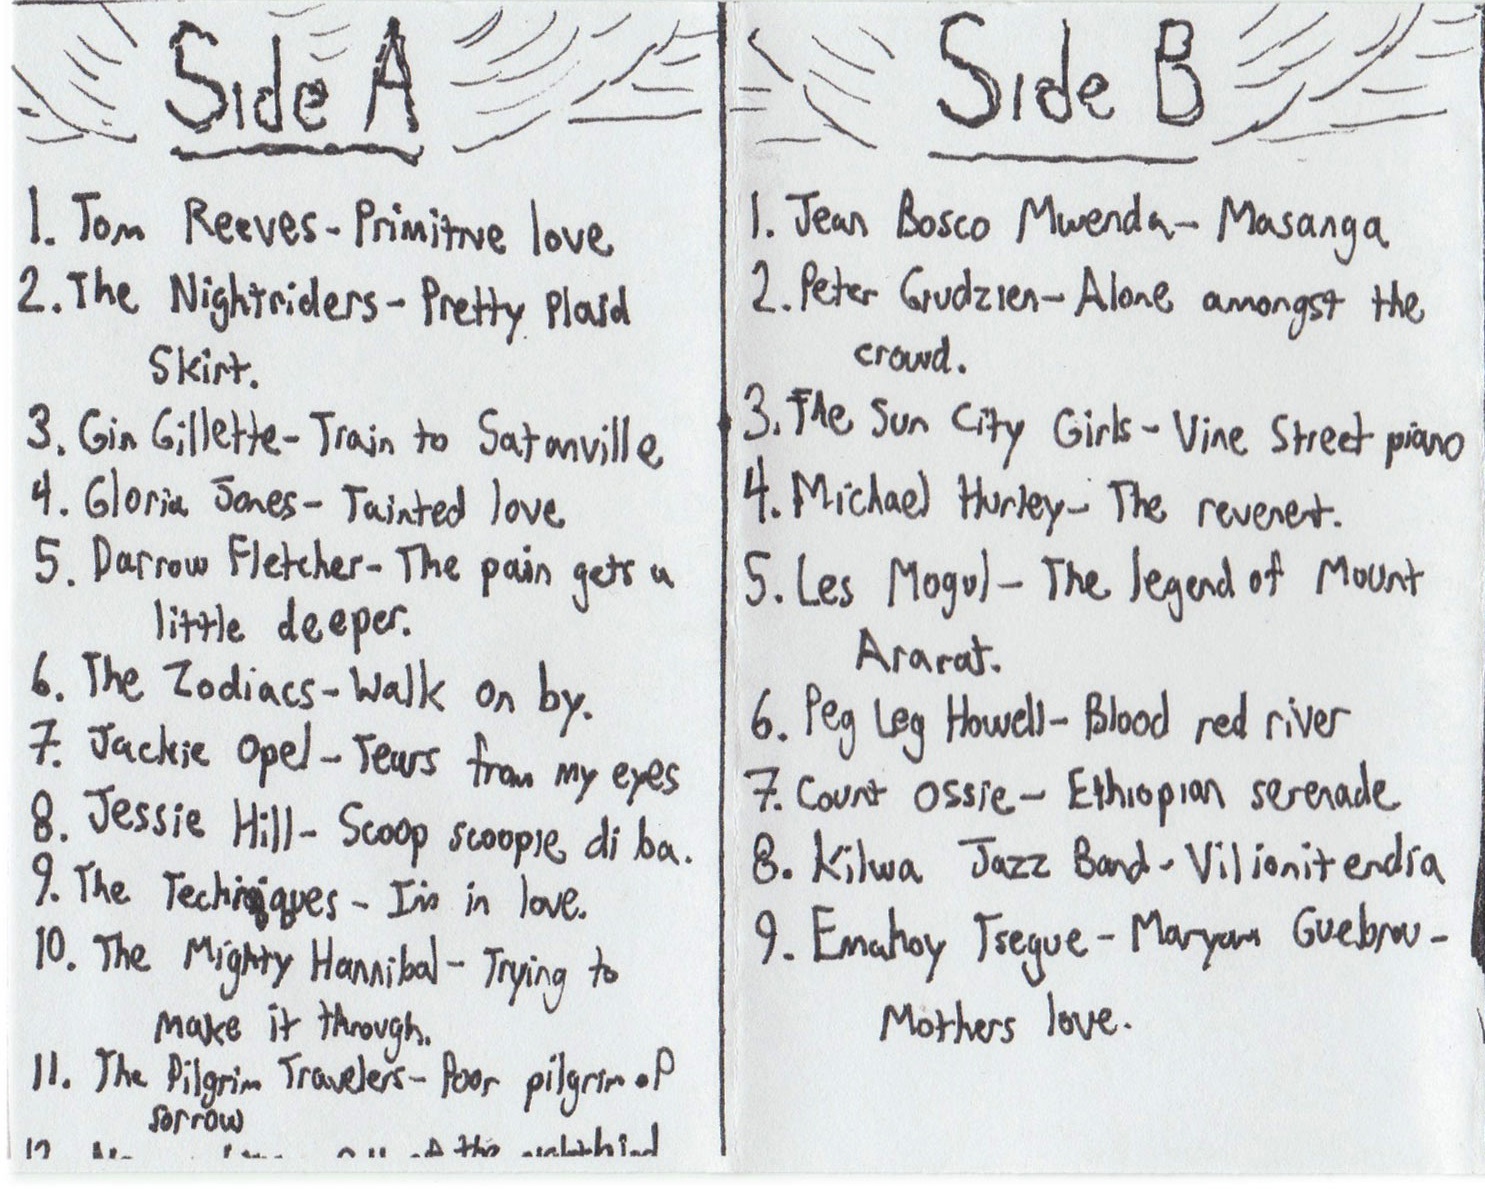 Side A
1. Tom Reeves - Primitive love
2. The Nightriders - Pretty Plaid
Skirt.
3. Gin Gillette - Train to Satanville
4. Gloria Jones - Tainted love
5. Darrow Fletcher - The pain gets a
little deeper.
6. The Zodiacs - Walk on by.
7. Jackie Opel - Tears from my eyes
8. Jessie Hill - Scoop scoopie di ba.
9. The Techniques - I'm in love.
10. The Mighty Hannibal - Trying to
make it through.
11. The Pilgrim Travelers - Poor pilgrim of
sorrow
12. the
Side B
1. Jean Bosco Mwenda - Masanga
2. Peter Grudzien - Alone amongst the
crowd.
3. The Sun City Girls - Vine Street piano
4. Michael Hurley - The revenent.
5. Les Mogul - The legend of Mount
Ararat.
6. Peg Leg Howell - Blood red river
7. Count Ossie - Ethiopian serenade
8. Kilwa Jazz Band - Vilionitendia
9. Emahoy Tsegue - Maryam Guebrou -
Mothers love.